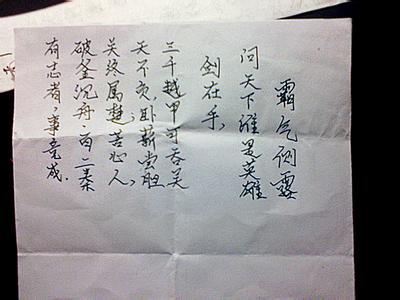 有志者,事竟成.
破釜沉舟,百二秦
关终属楚;苦心人,
天不负,卧薪尝胆
三千越甲可吞吴
剑在手,
问天下谁是英雄
霸气侧露